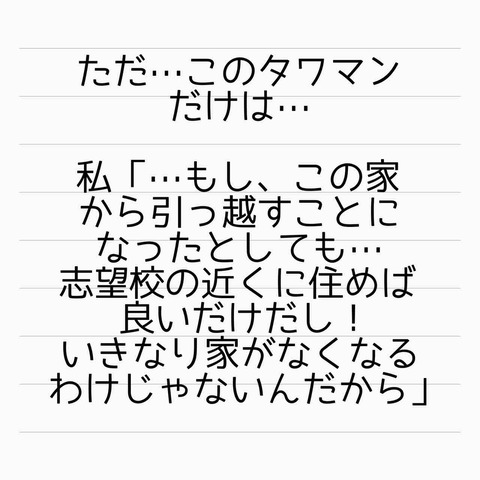 ただ…このタワマン
だけは…
私「…もし、この家
から引っ越すことに
なったとしても…
志望校の近くに住めば
良いだけだし！
いきなり家がなくなる
わけじゃないんだから」